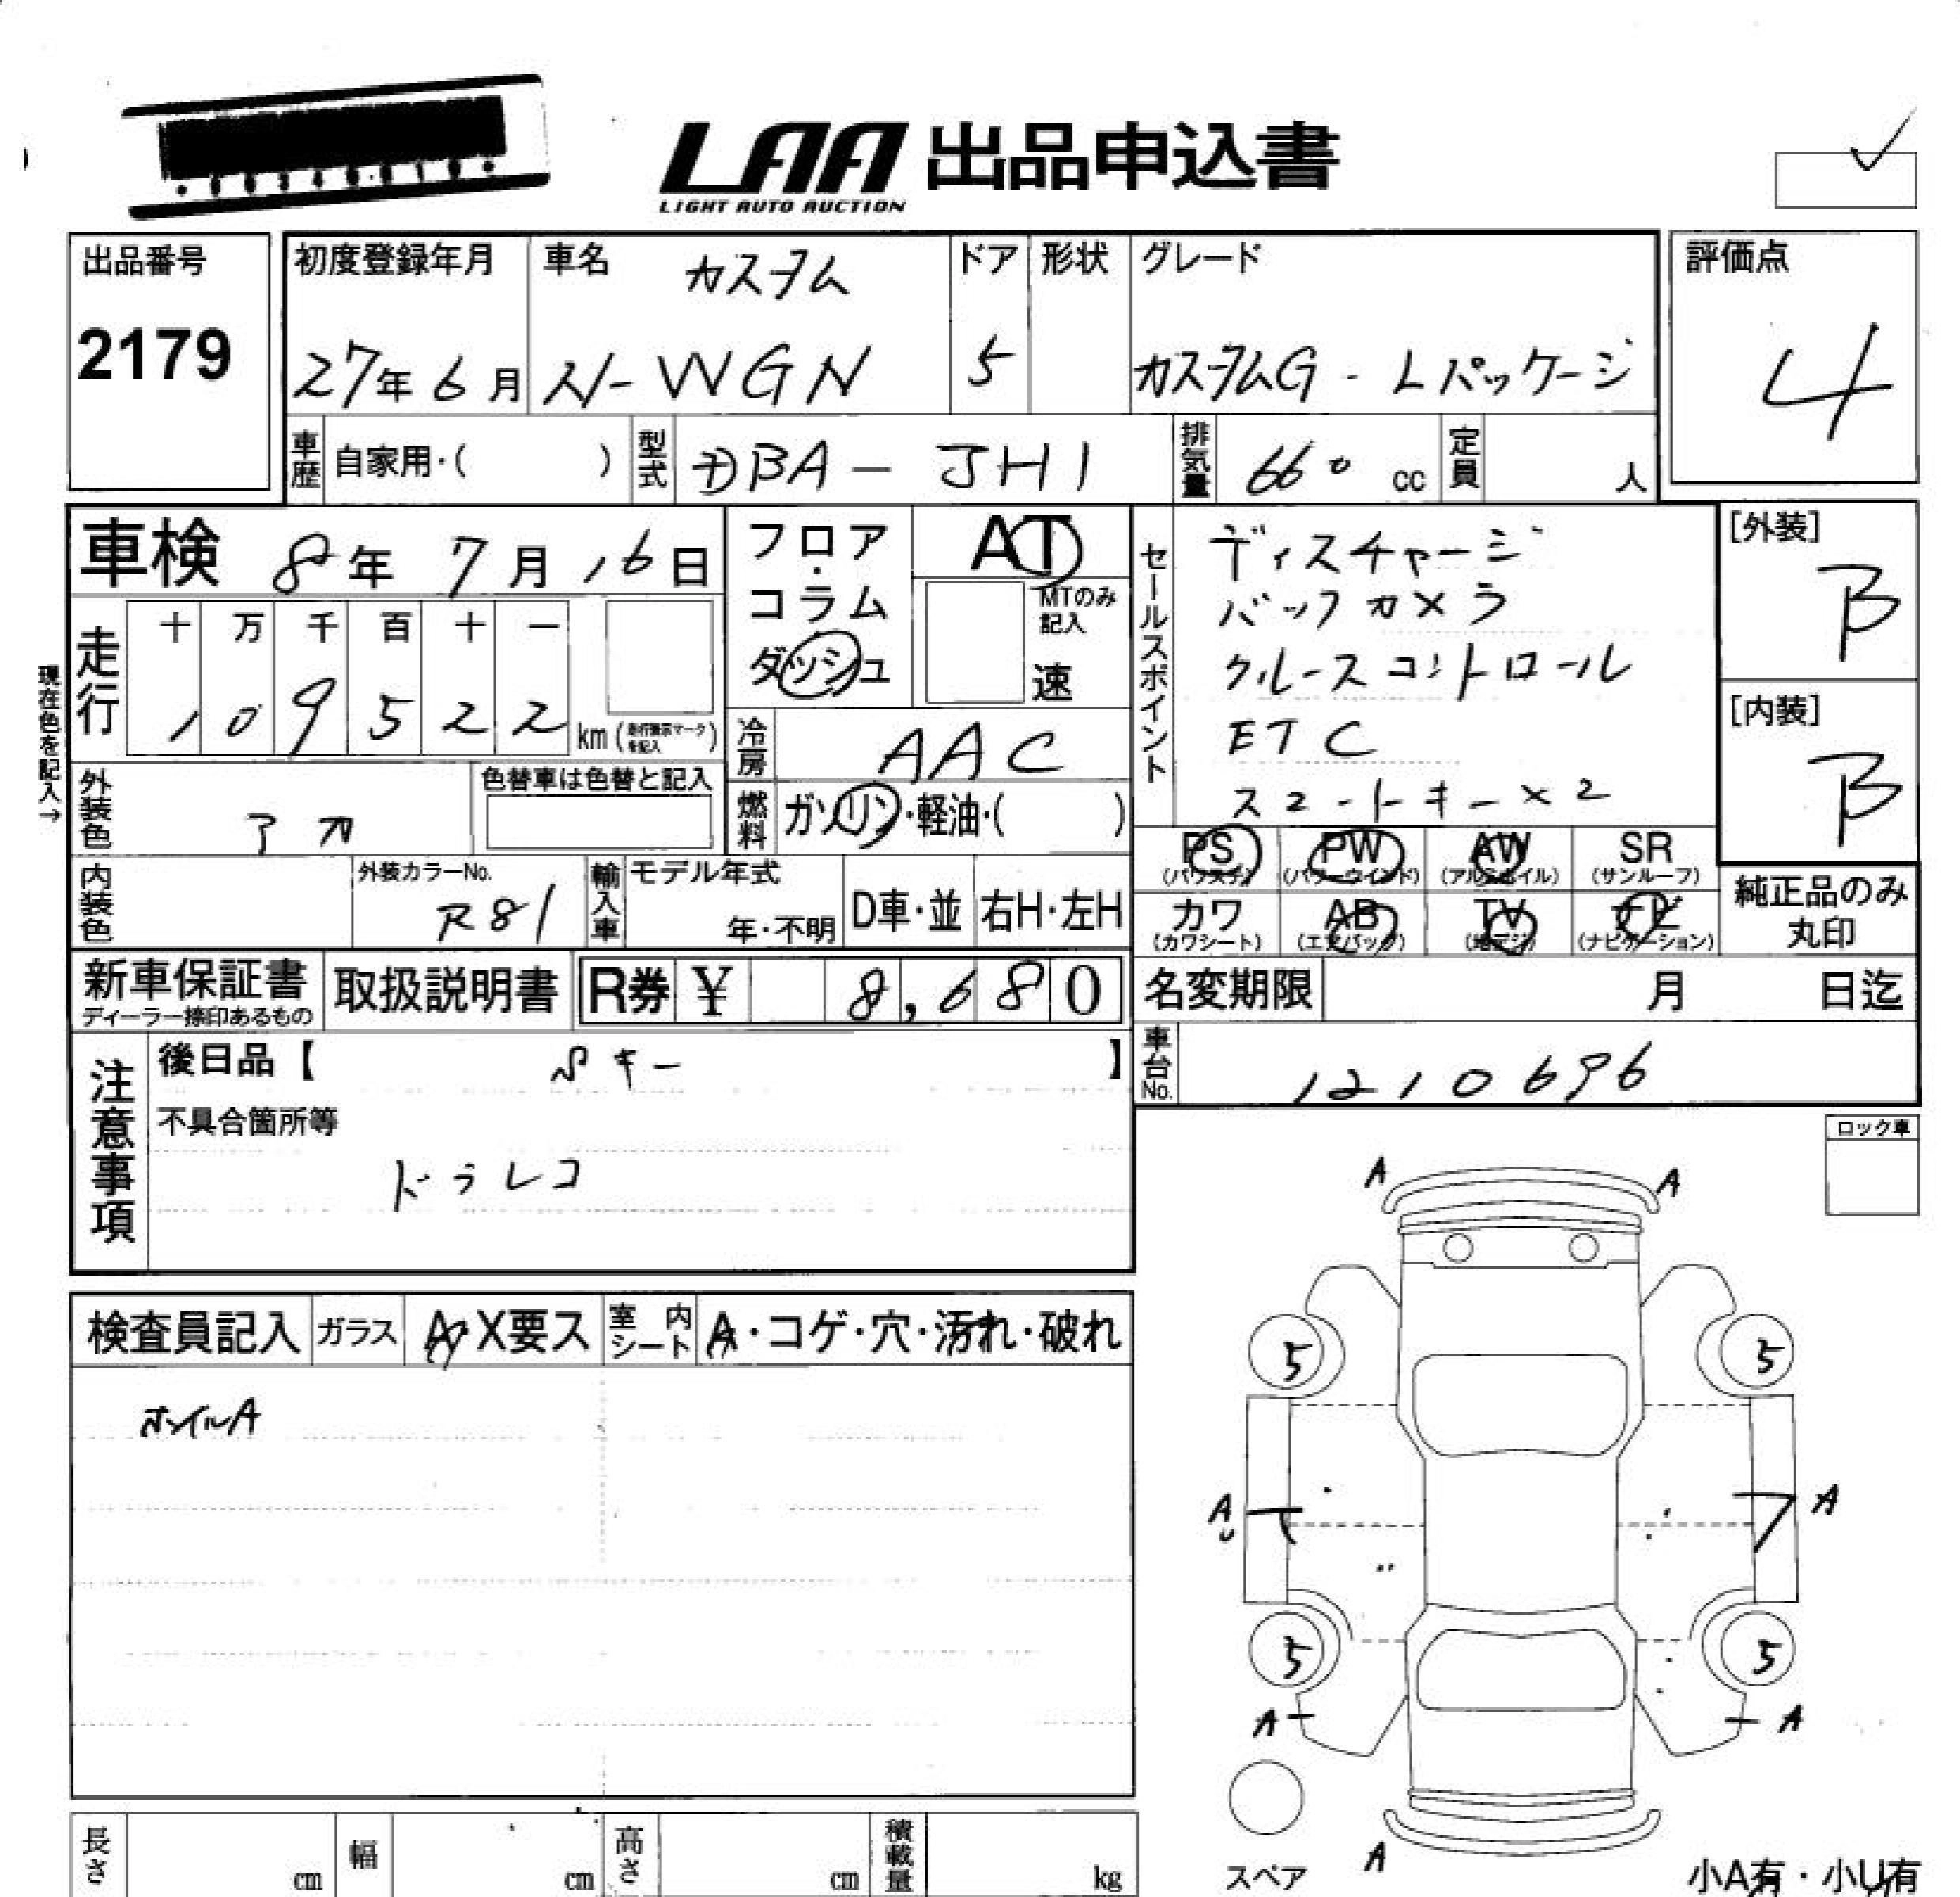 LAA 出品申込書
LIGHT AUTO AUCTION
出品番号
2179
初度登録年月
27年6月
車名
カスタム
N-WGN
ドア
5
形状
グレード
カスタムG・Lパッケージ
評価点
4
車歴 自家用・( )
型式 DBA-JH1
排気量 660 cc
定員 人
車検 8年7月16日
走行 十 万 千 百 十 一
1 0 9 5 2 2 km (走行表示マークを記入)
現在色を記入→
外装色 アカ
色替車は色替と記入
内装色
外装カラーNo.
R81
フロア・コラム
ダッシュ
AT
MTのみ記入
速
冷房 AAC
燃料 ガソリン・軽油・( )
輸入車 モデル年式
年・不明
D車・並 右H・左H
セールスポイント
ディスチャージ
バックカメラ
クルーズコントロール
ETC
スマートキー×2
[外装]
B
[内装]
B
PS (パワステ) PW (パワーウインド) AW (アルミホイル) SR (サンルーフ)
カワ (カワシート) AB (エアバック) TV (地デジ) ナビ (ナビゲーション)
純正品のみ
丸印
新車保証書
ディーラー捺印あるもの
取扱説明書
R券 ¥ 8,680
名変期限 月 日迄
車台No. 1210696
注意事項
後日品【 Sキー 】
不具合箇所等
ドラレコ
ロック車
検査員記入 ガラス A・X要ス 室内シート A・コゲ・穴・汚れ・破れ
ホイルA
A A
5 5
A A
5 5
A A
スペア
A
小A有・小U有
長さ cm 幅 cm 高さ cm 積載量 kg